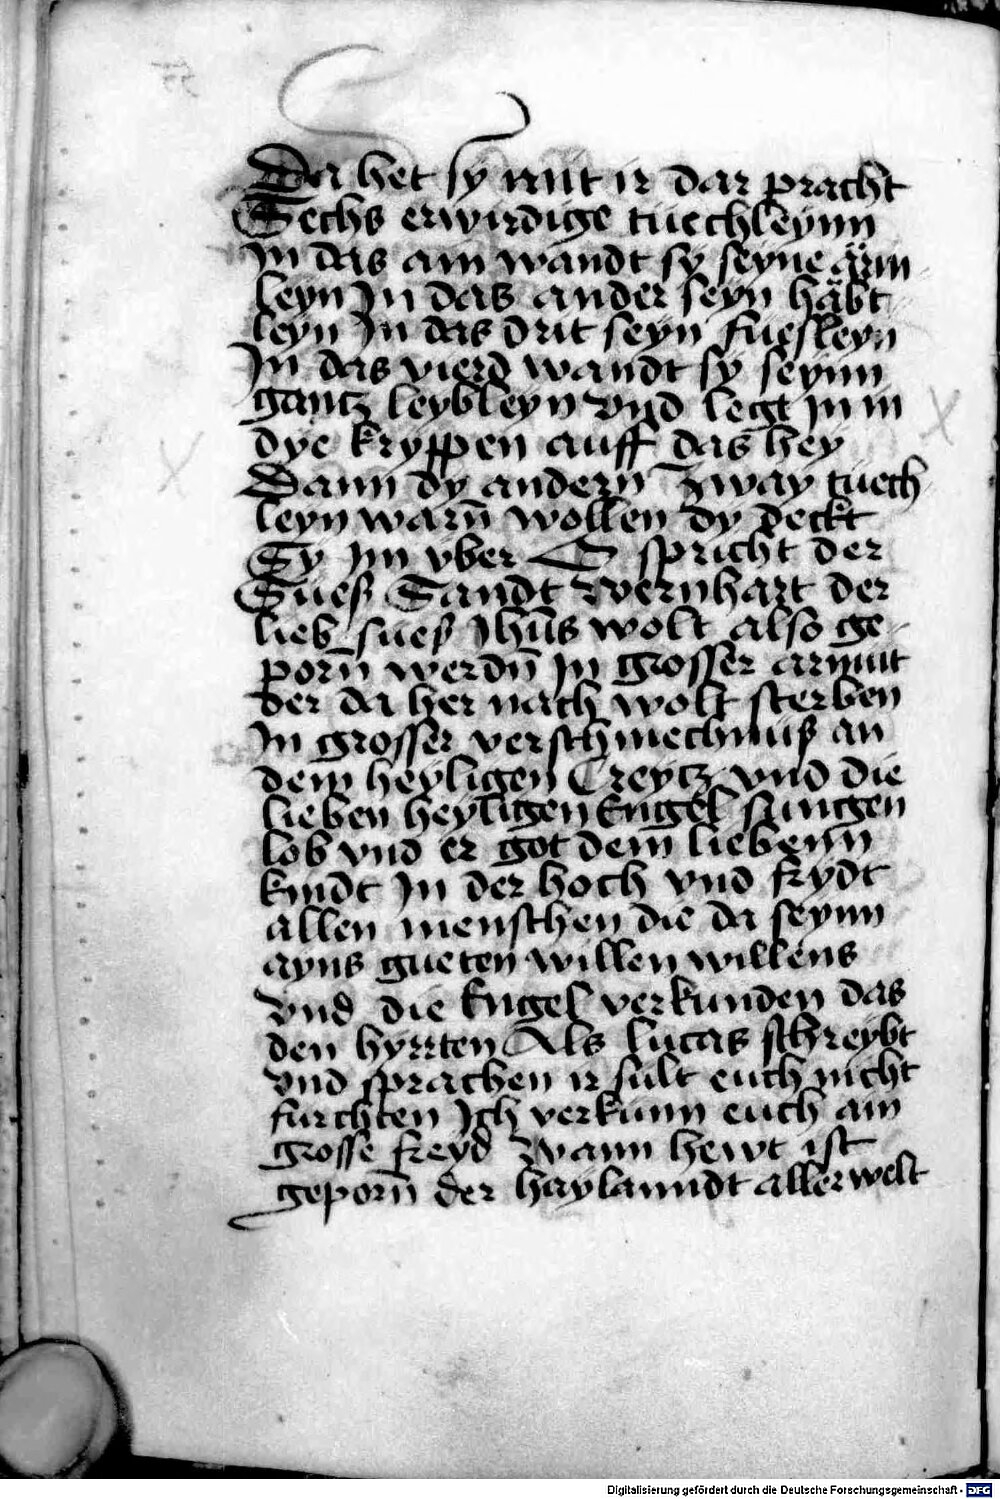 Da het sy mit ir dar pracht
Sechs erwirdige tuechleynn
In das ain wandt sÿ seyne ärm
leyn In das ander seyn häbt
leyn In das drit seyn fuesleyn
In das vierd wandt sÿ seynn
gantz leybleyn vnd legt in in
dye kryppen auff das hey
Dann dy andern zway tuech
leyn warn̄ wollen dy deckt
Sy im vber spricht der
Suess Sandt Wernhart der
lieb suess Jhūs wolt also ge
porn̄ werdn̄ In grosser armut
der da her nach wolt sterben
In grosser verschmechnuss an
dem heyligen Creytz vnd die
lieben heyligen Engel sungen
lob vnd er got dem̄ liebenn̄
kindt In der hoch vnd frydt
allen menschen die da seynn
ayns gueten willen willens
vnd die Engel verkunden das
den hyrrten Als lucas schreybt
vnd sprachen ir sult euch nicht
furchten Ich verkunn euch ain
grosse freyd wann hewt ist
geporn̄ der haylanndt aller welt
Digitalisierung gefördert durch die Deutsche Forschungsgemeinschaft - DFG